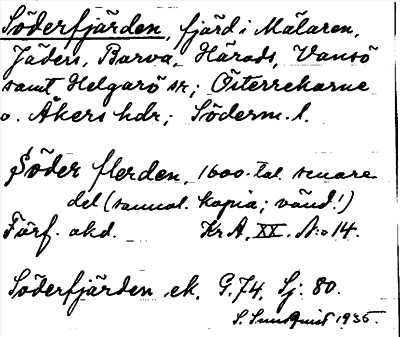 Söderfjärden, fjärd i Mälaren,
Jäders, Barva, Härads, Vansö
samt Helgarö snr; Österrekarne
o. Åkers hdr; Söderm. l.
Söder fierden, 1600-tal. senare
del (samml. kopia; vänd!)
Förf. okd. KrA, XX. No 14.
Söderfjärden ek. G. 74, Sj. 80.
S. Sundquist 1935.